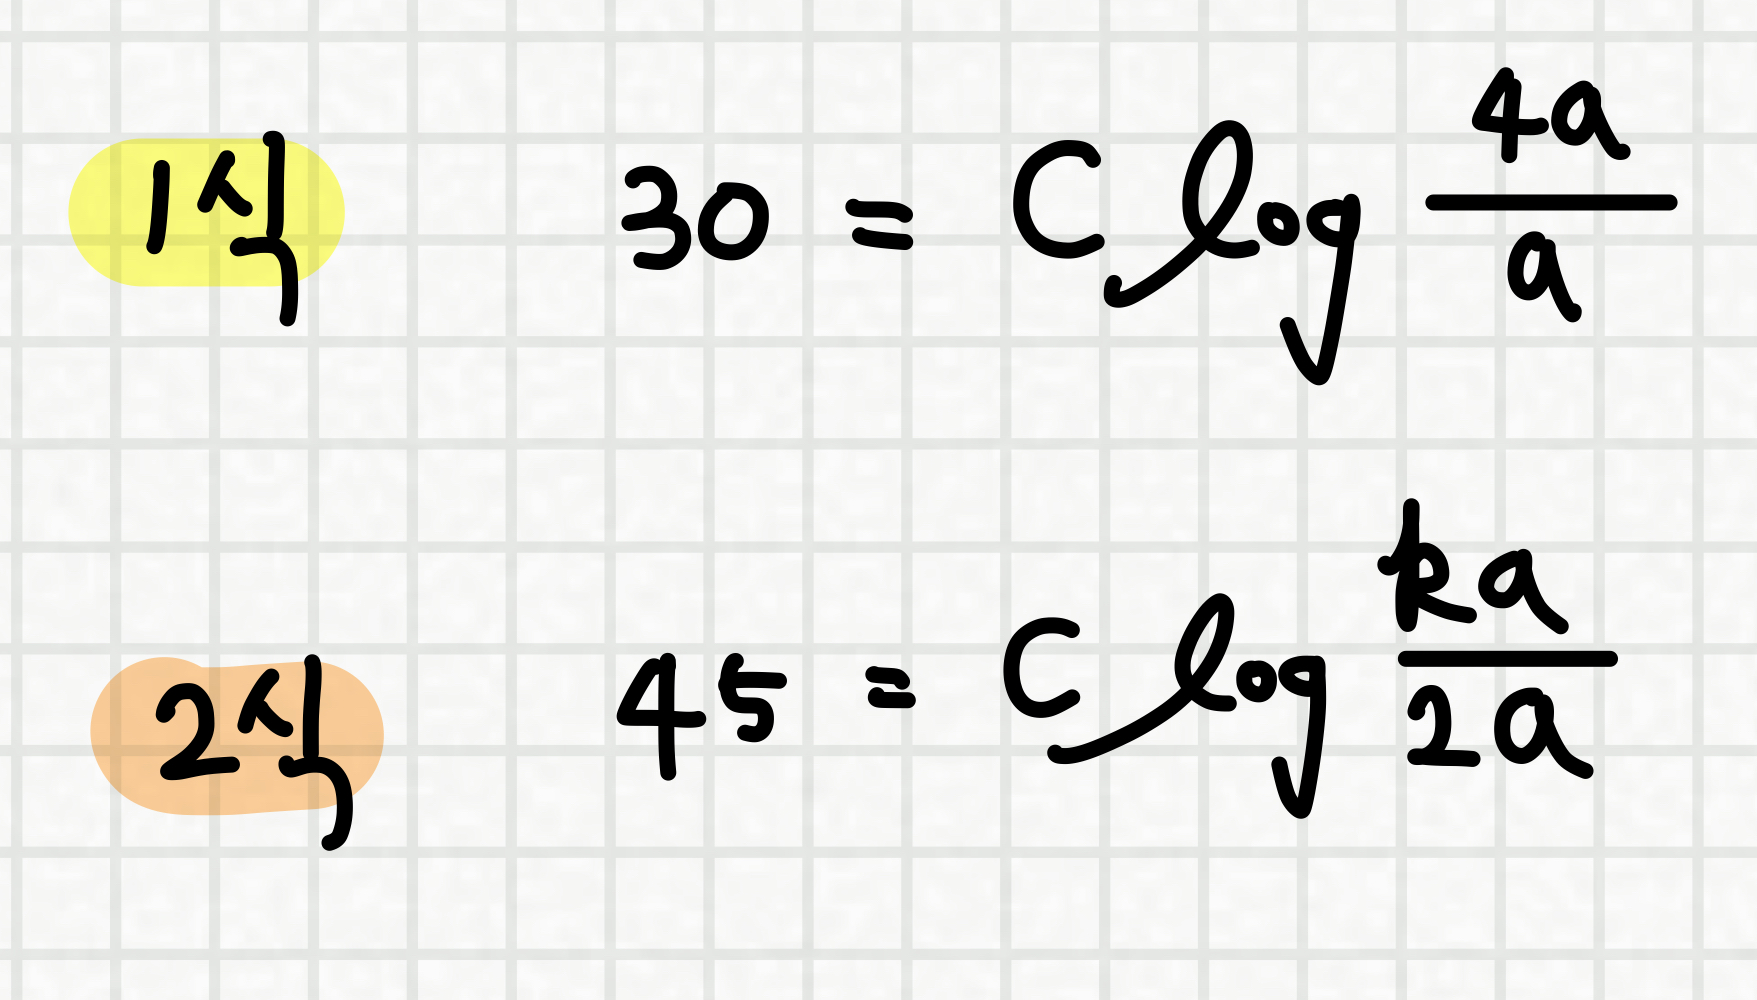 1식 30 = C log 4a/a
2식 45 = C log ka/2a